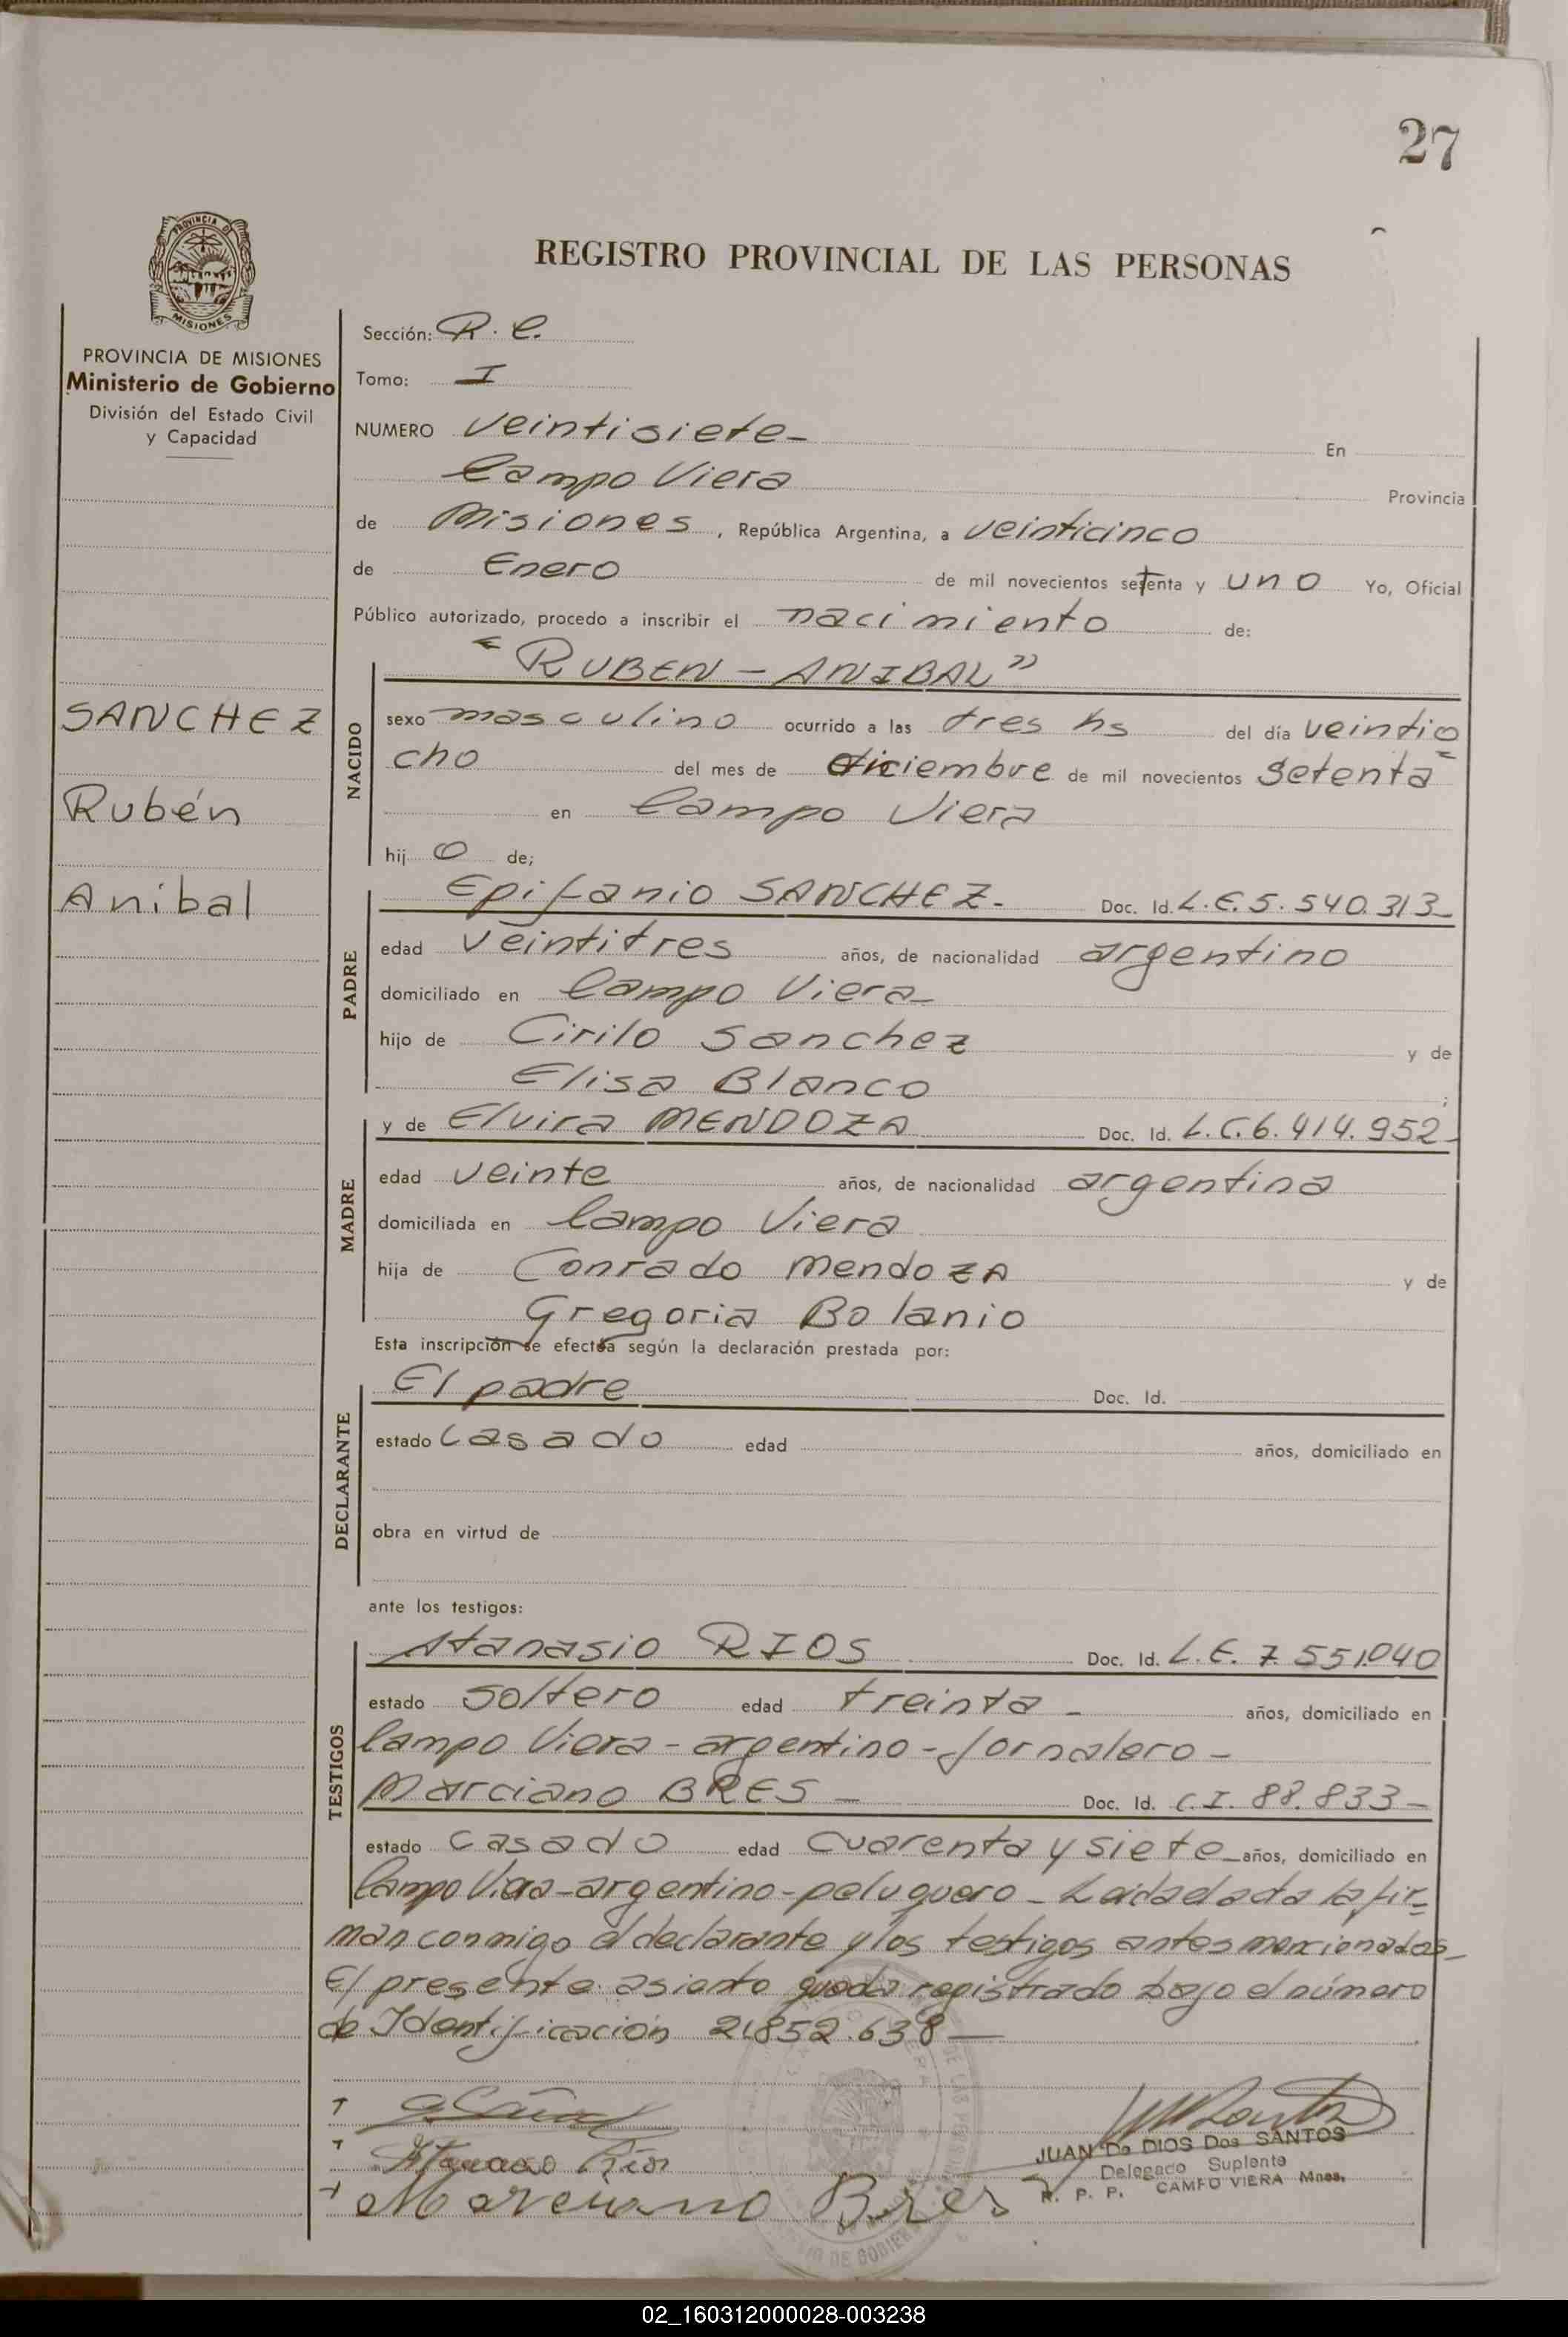 27
PROVINCIA DE
MISIONES
PROVINCIA DE MISIONES
Ministerio de Gobierno
División del Estado Civil
y Capacidad
SANCHEZ
Rubén
Anibal
REGISTRO PROVINCIAL DE LAS PERSONAS
Sección: R. C.
Tomo: I
NUMERO veintisiete- En
Campo Viera Provincia
de Misiones, República Argentina, a veinticinco
de Enero de mil novecientos setenta y uno Yo, Oficial
Público autorizado, procedo a inscribir el nacimiento de:
NACIDO
"RUBEN - ANIBAL"
sexo masculino ocurrido a las tres hs del día veintio=
cho del mes de diciembre de mil novecientos setenta
en Campo Viera
hij o de;
PADRE
Epifanio SANCHEZ- Doc. Id. L.E. 5.540.313-
edad veintitres años, de nacionalidad argentino
domiciliado en Campo Viera-
hijo de Cirilo Sanchez y de
Elisa Blanco ;
MADRE
y de Elvira MENDOZA Doc. Id. L.C. 6.414.952-
edad veinte años, de nacionalidad argentina
domiciliada en Campo Viera
hija de Conrado Mendoza y de
Gregoria Bolanio
Esta inscripción se efectúa según la declaración prestada por:
DECLARANTE
El padre Doc. Id.
estado Casado edad años, domiciliado en
obra en virtud de
ante los testigos:
TESTIGOS
Atanasio RIOS Doc. Id. L.E. 7.551.040
estado soltero edad treinta - años, domiciliado en
Campo Viera - argentino - Jornalero -
Marciano BRES - Doc. Id. C.I. 88.833-
estado casado edad cuarenta y siete- años, domiciliado en
Campo Viera - argentino - peluquero - Leida el acta la fir=
man conmigo el declarante y los testigos antes mencionados-
El presente asiento queda registrado bajo el número
de Identificación 21.852.638-
Atanasio Rios
Marciano Bres
JUAN De DIOS Dos SANTOS
Delegado Suplente
R. P. P. CAMPO VIERA Mnes.
02_160312000028-003238